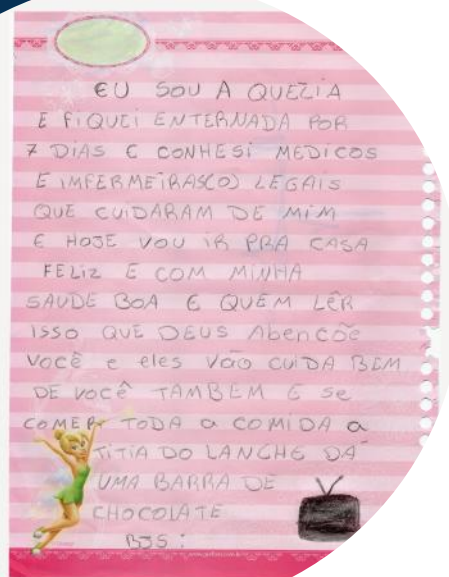 EU SOU A QUEZIA
E FIQUEI ENTERNADA POR
7 DIAS E CONHESI MEDICOS
E IMFERMEIRAS(O) LEGAIS
QUE CUIDARAM DE MIM
E HOJE VOU IR PRA CASA
FELIZ E COM MINHA
SAUDE BOA E QUEM LÊR
ISSO QUE DEUS AbENCÕE
VOCÊ e eles Vão CUIDA BEM
DE Você TAMBEM E Se
COMER TODA a COMIDA a
TITIA DO LANCHE DÁ
UMA BARRA DE
CHOCOLATE
BJS: